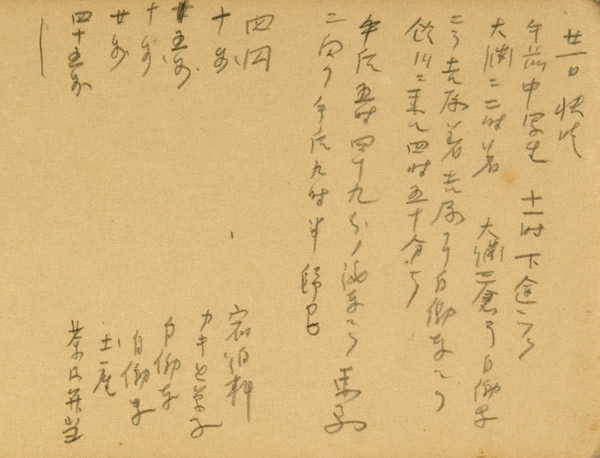 廿一日 快晴
午前中写生 十一時下途ニテ
大淵ニ二時着 大淵ニ テ自働車
ニテ吉原着 吉原ヨリ自働車ニテ
鈴川ニ来ル 四時五十分ナリ
午后五時四十九分ノ汽車ニテ 東京
ニ向フ 午后九時半帰宅
四円 宿泊料
十銭 カキと菓子
廿五銭 自働車
十銭 自働車
廿銭 土産
四十五銭 茶及弁当